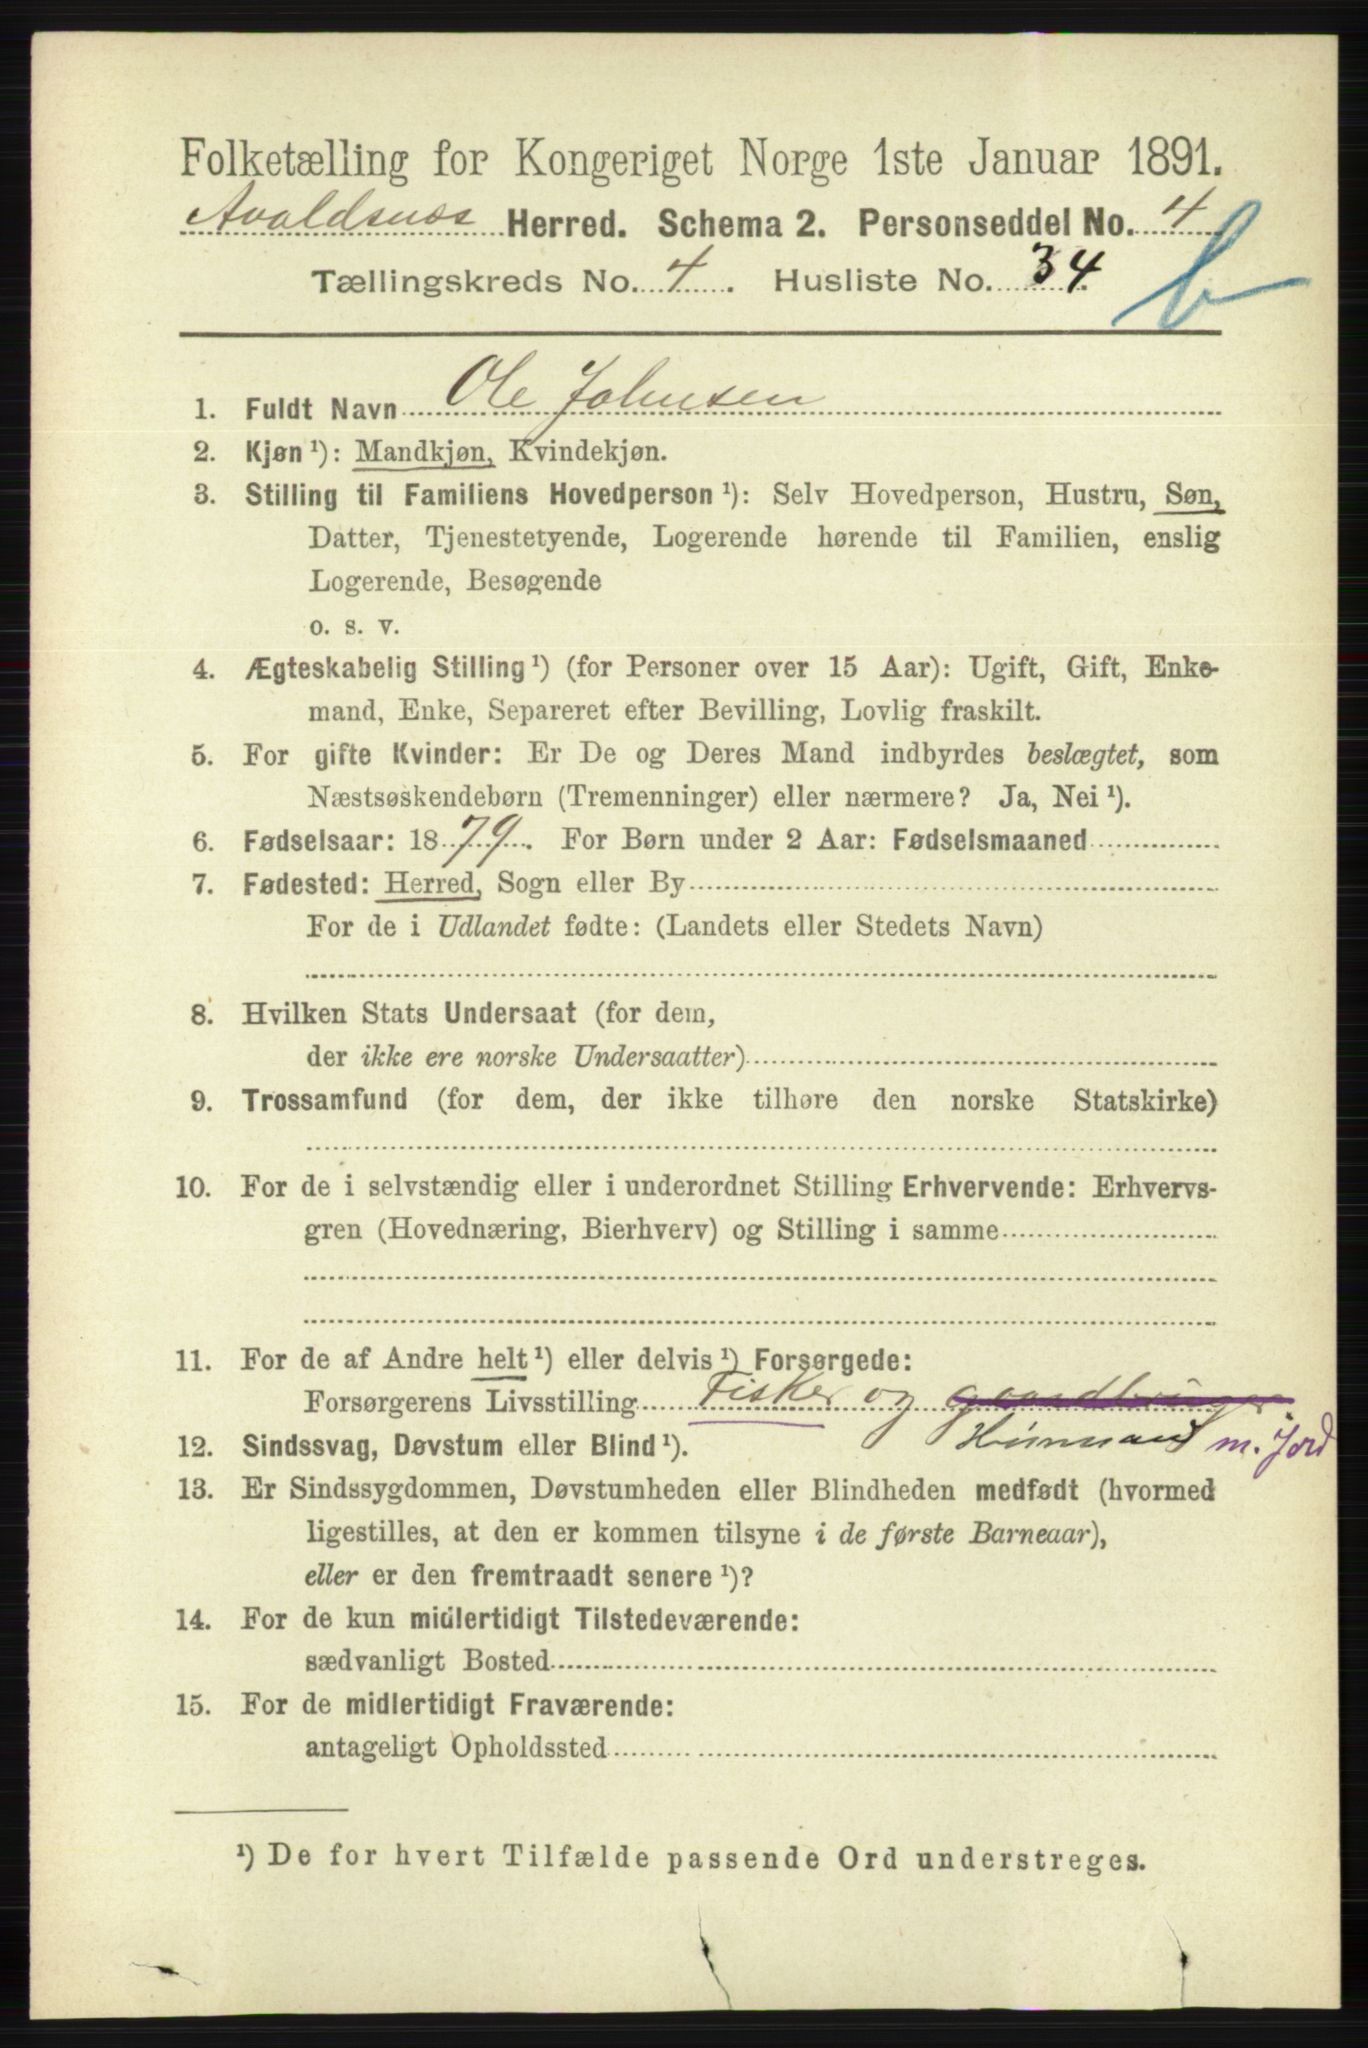 Folketælling for Kongeriget Norge 1ste Januar 1891.
Avaldsnæs Herred. Schema 2. Personseddel No. 4
Tællingskreds No. 4. Husliste No. 34
b
1. Fuldt Navn Ole Johnsen
2. Kjøn ¹): Mandkjøn, Kvindekjøn.
3. Stilling til Familiens Hovedperson ¹): Selv Hovedperson, Hustru, Søn,
Datter, Tjenestetyende, Logerende hørende til Familien, enslig
Logerende, Besøgende
o. s. v.
4. Ægteskabelig Stilling ¹) (for Personer over 15 Aar): Ugift, Gift, Enke-
mand, Enke, Separeret efter Bevilling, Lovlig fraskilt.
5. For gifte Kvinder: Er De og Deres Mand indbyrdes beslægtet, som
Næstsøskendebørn (Tremenninger) eller nærmere? Ja, Nei ¹).
6. Fødselsaar: 1879. For Børn under 2 Aar: Fødselsmaaned
7. Fødested: Herred, Sogn eller By
For de i Udlandet fødte: (Landets eller Stedets Navn)
8. Hvilken Stats Undersaat (for dem,
der ikke ere norske Undersaatter)
9. Trossamfund (for dem, der ikke tilhøre den norske Statskirke)
10. For de i selvstændig eller i underordnet Stilling Erhvervende: Erhvervs-
gren (Hovednæring, Bierhverv) og Stilling i samme
11. For de af Andre helt ¹) eller delvis ¹) Forsørgede:
Forsørgerens Livsstilling Fisker og gaardbruger
Husmand m. Jord
12. Sindssvag, Døvstum eller Blind ¹).
13. Er Sindssygdommen, Døvstumheden eller Blindheden medfødt (hvormed
ligestilles, at den er kommen tilsyne i de første Barneaar),
eller er den fremtraadt senere ¹)?
14. For de kun midlertidigt Tilstedeværende:
sædvanligt Bosted
15. For de midlertidigt Fraværende:
antageligt Opholdssted
¹) De for hvert Tilfælde passende Ord understreges.